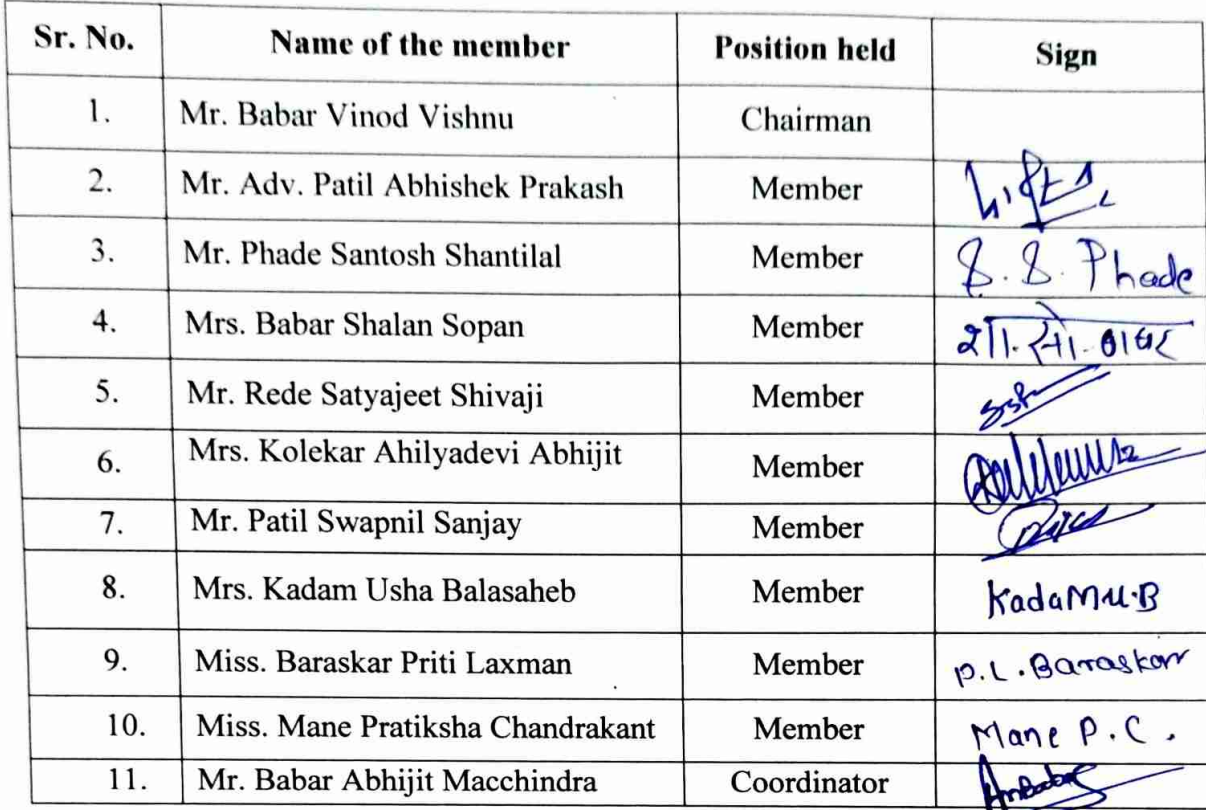 Sr. No. Name of the member Position held Sign
1. Mr. Babar Vinod Vishnu Chairman
2. Mr. Adv. Patil Abhishek Prakash Member
3. Mr. Phade Santosh Shantilal Member S. S. Phade
4. Mrs. Babar Shalan Sopan Member शा. सो. बाबर
5. Mr. Rede Satyajeet Shivaji Member
6. Mrs. Kolekar Ahilyadevi Abhijit Member
7. Mr. Patil Swapnil Sanjay Member
8. Mrs. Kadam Usha Balasaheb Member Kadam U.B
9. Miss. Baraskar Priti Laxman Member P.L. Baraskar
10. Miss. Mane Pratiksha Chandrakant Member Mane P.C.
11. Mr. Babar Abhijit Macchindra Coordinator